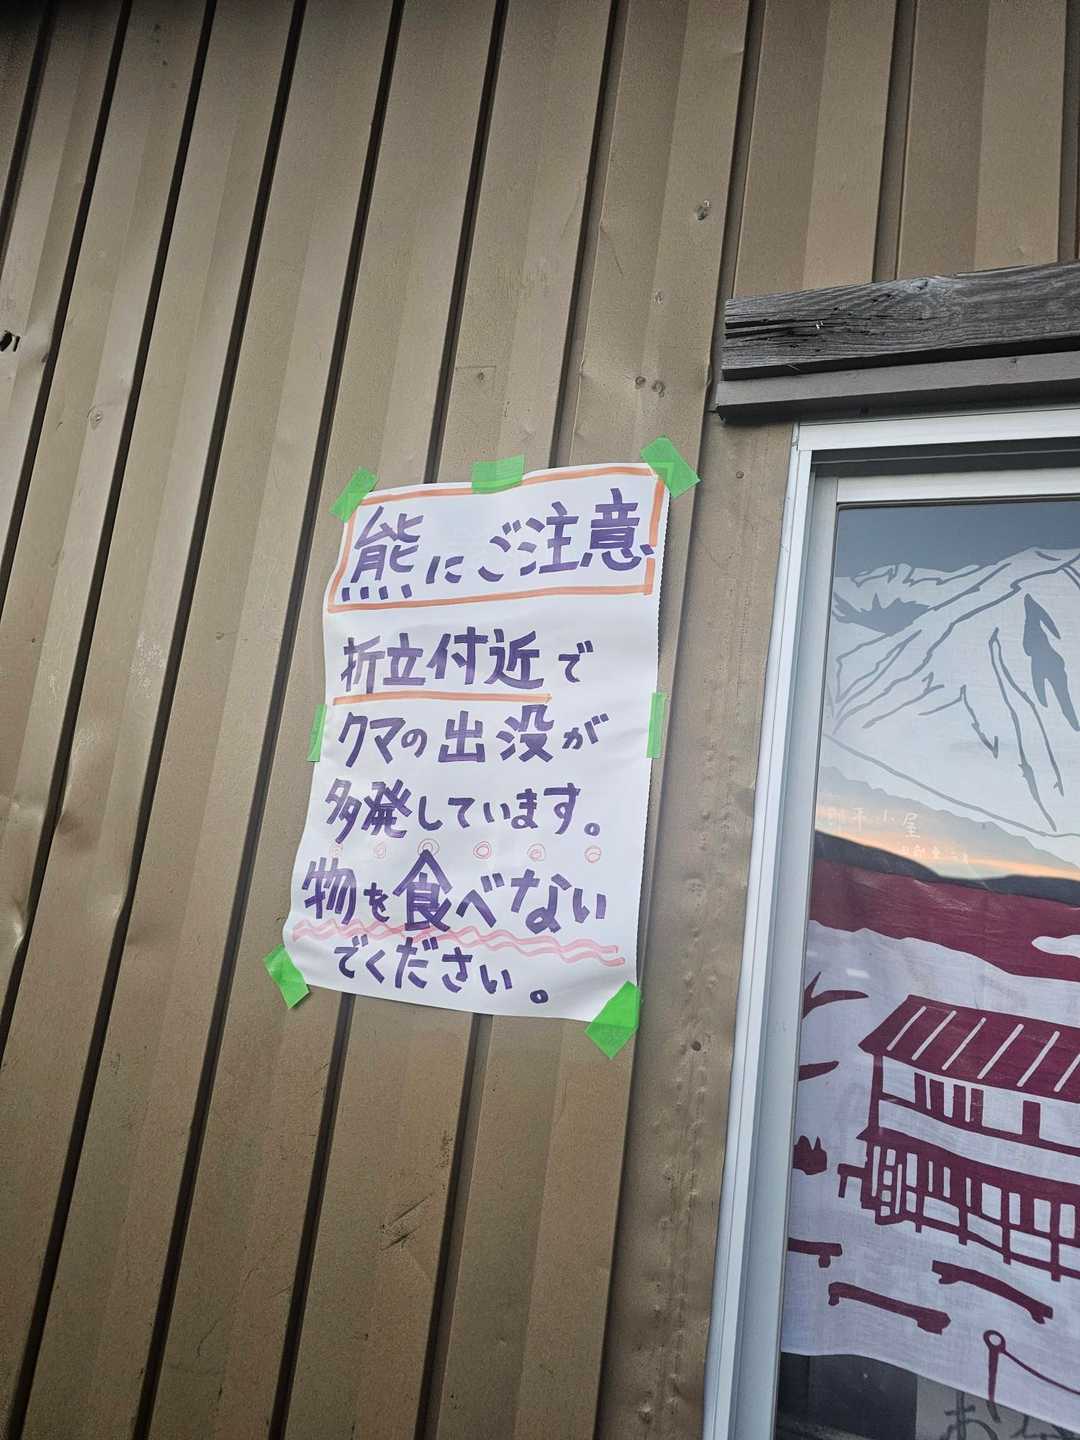 熊にご注意
折立付近で
クマの出没が
多発しています。
物を食べない
でください。
平小屋